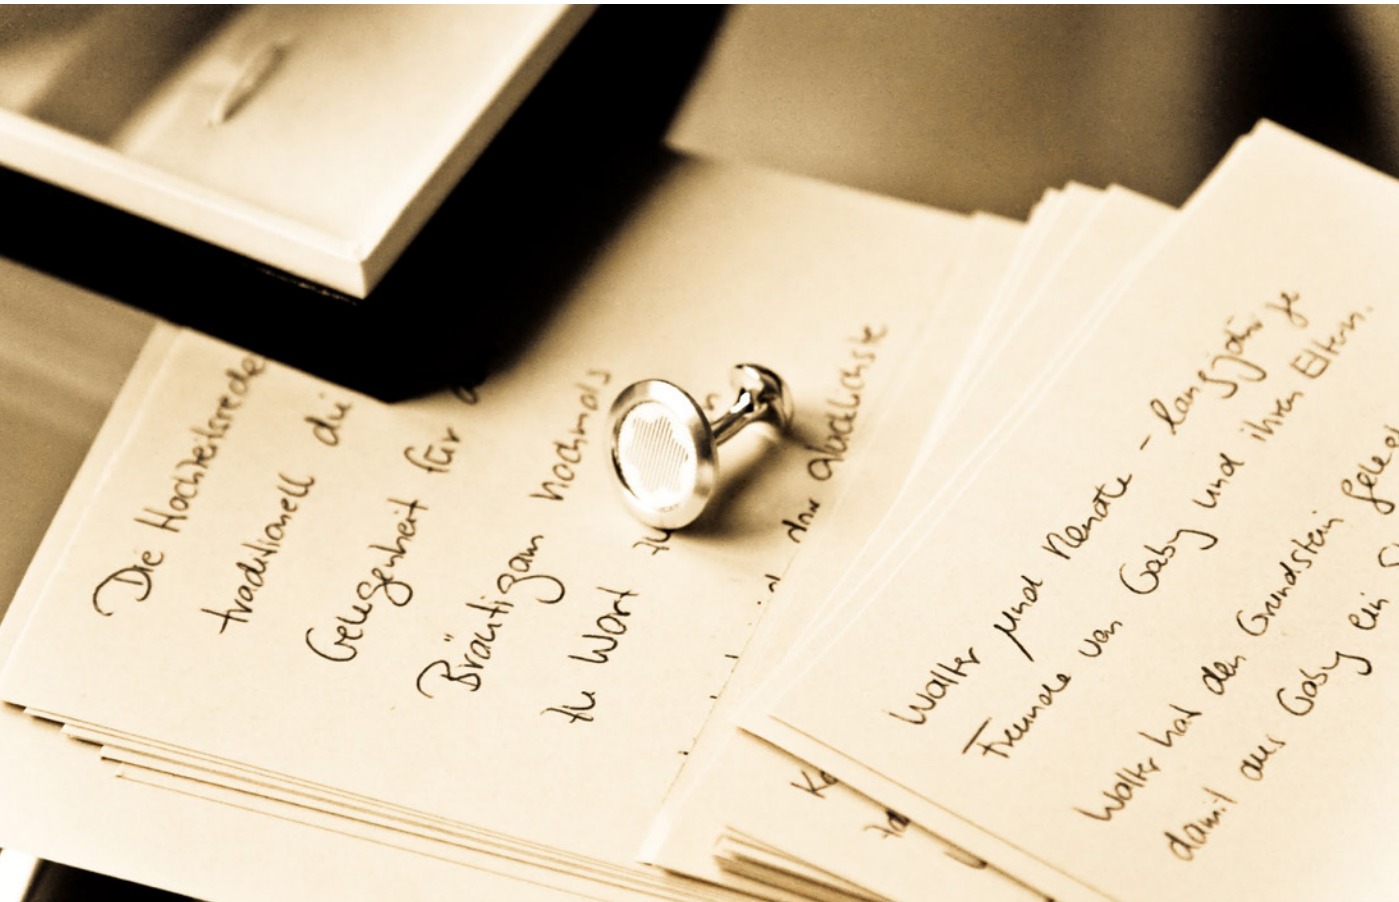 Die Hochzeitsrede
traditionell die
Gelegenheit für
Bräutigam nochmals
zu Wort zu
glücklichste
Walter und Renate - langjährige
Freunde von Gaby und ihren Eltern.
Walter hat den Grundstein
damit aus Gaby ein